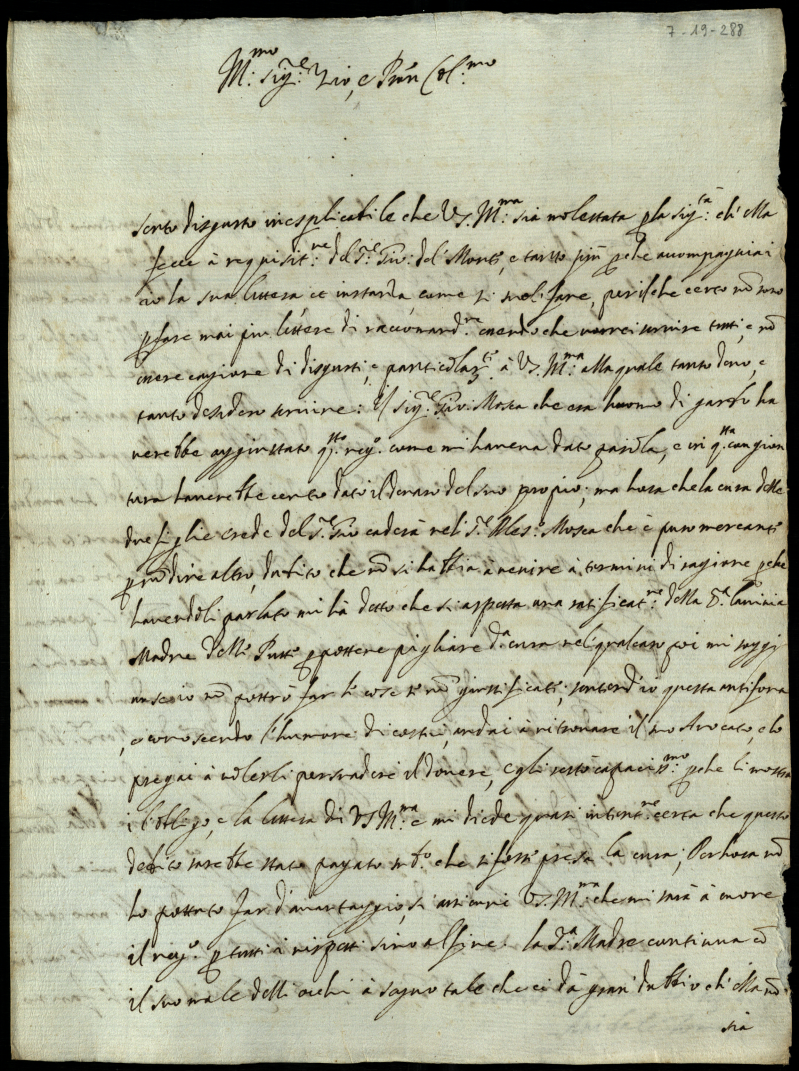 7-19-288
M:mo sig:re Zio, e Pron Col:mo
sento disgusto inesplicabile che VS. M:ma sia molestata p la sig:tà ch'Ella
fece à requisit:ne del S:r Gio: del Monte, e tanto più pche accompagniai
io la sua littera et instanza come si suol fare, perilche certo nō sono
p fare mai piu littere di raccōmand:ne essendo che vorrei servire tutti, e nō
essere cagione di disgusti, e particolar:te à VS. M:ma alla quale tanto devo, e
tanto desidero servire: Il sig:re Gio: Mosca che era huomo di garbo ha
verebbe aggiustato q:sto neg:o come mi haveva dato parola, e in q:sta congion
tura haverebbe certo dato il denaro del suo proprio; ma hora che la cura delle
due figlie erede del S:r Gio caderà nel S:r Aless:o Mosca che è puro mercante
p nō dire altro, dubito che nō si habbia à venire à termini di ragione pche
havendoli parlato mi hà detto che si aspetta una ratificat:ne della S:a lavinia
Madre delli Putti p pottere pigliare d:a cura nel qual caso poi mi soggi
unse io nō pottrò far le cose se nō giustificate, sentend'io questa antifona
, e conoscendo l'humore di costui, andai à ritrovare il suo Avocato, e lo
pregai à volerli persuadere il dovere, e gli restò capaciss:mo pche li mostrai
l'obligo, e la littera di VS M:ma e mi diede quasi intent:ne certa che questo
debito sarebbe stato pagato sub:o che si fosse presa la cura; Perhora nō
ho pottuto far d'avantaggio, si assicuri VS. M:ma che mi sarà à cuore
il neg:o p tutti i rispetti sino al fine. la S:a Madre continua cō
il suo male delli occhi à segno tale che ci dà gran dubbio ch'Ella nō
sia